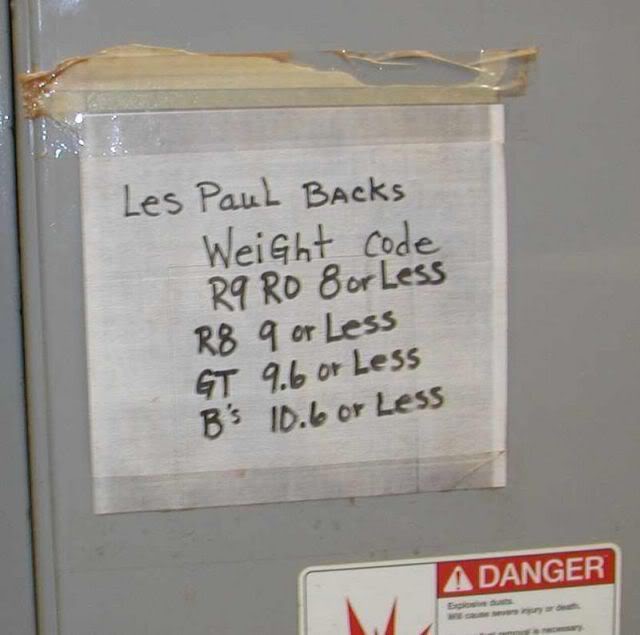 Les Paul Backs
Weight Code
R9 R0 8 or Less
R8 9 or Less
GT 9.6 or Less
B's 10.6 or Less
DANGER
Explosive dusts.
Will cause severe injury or death.
is necessary.